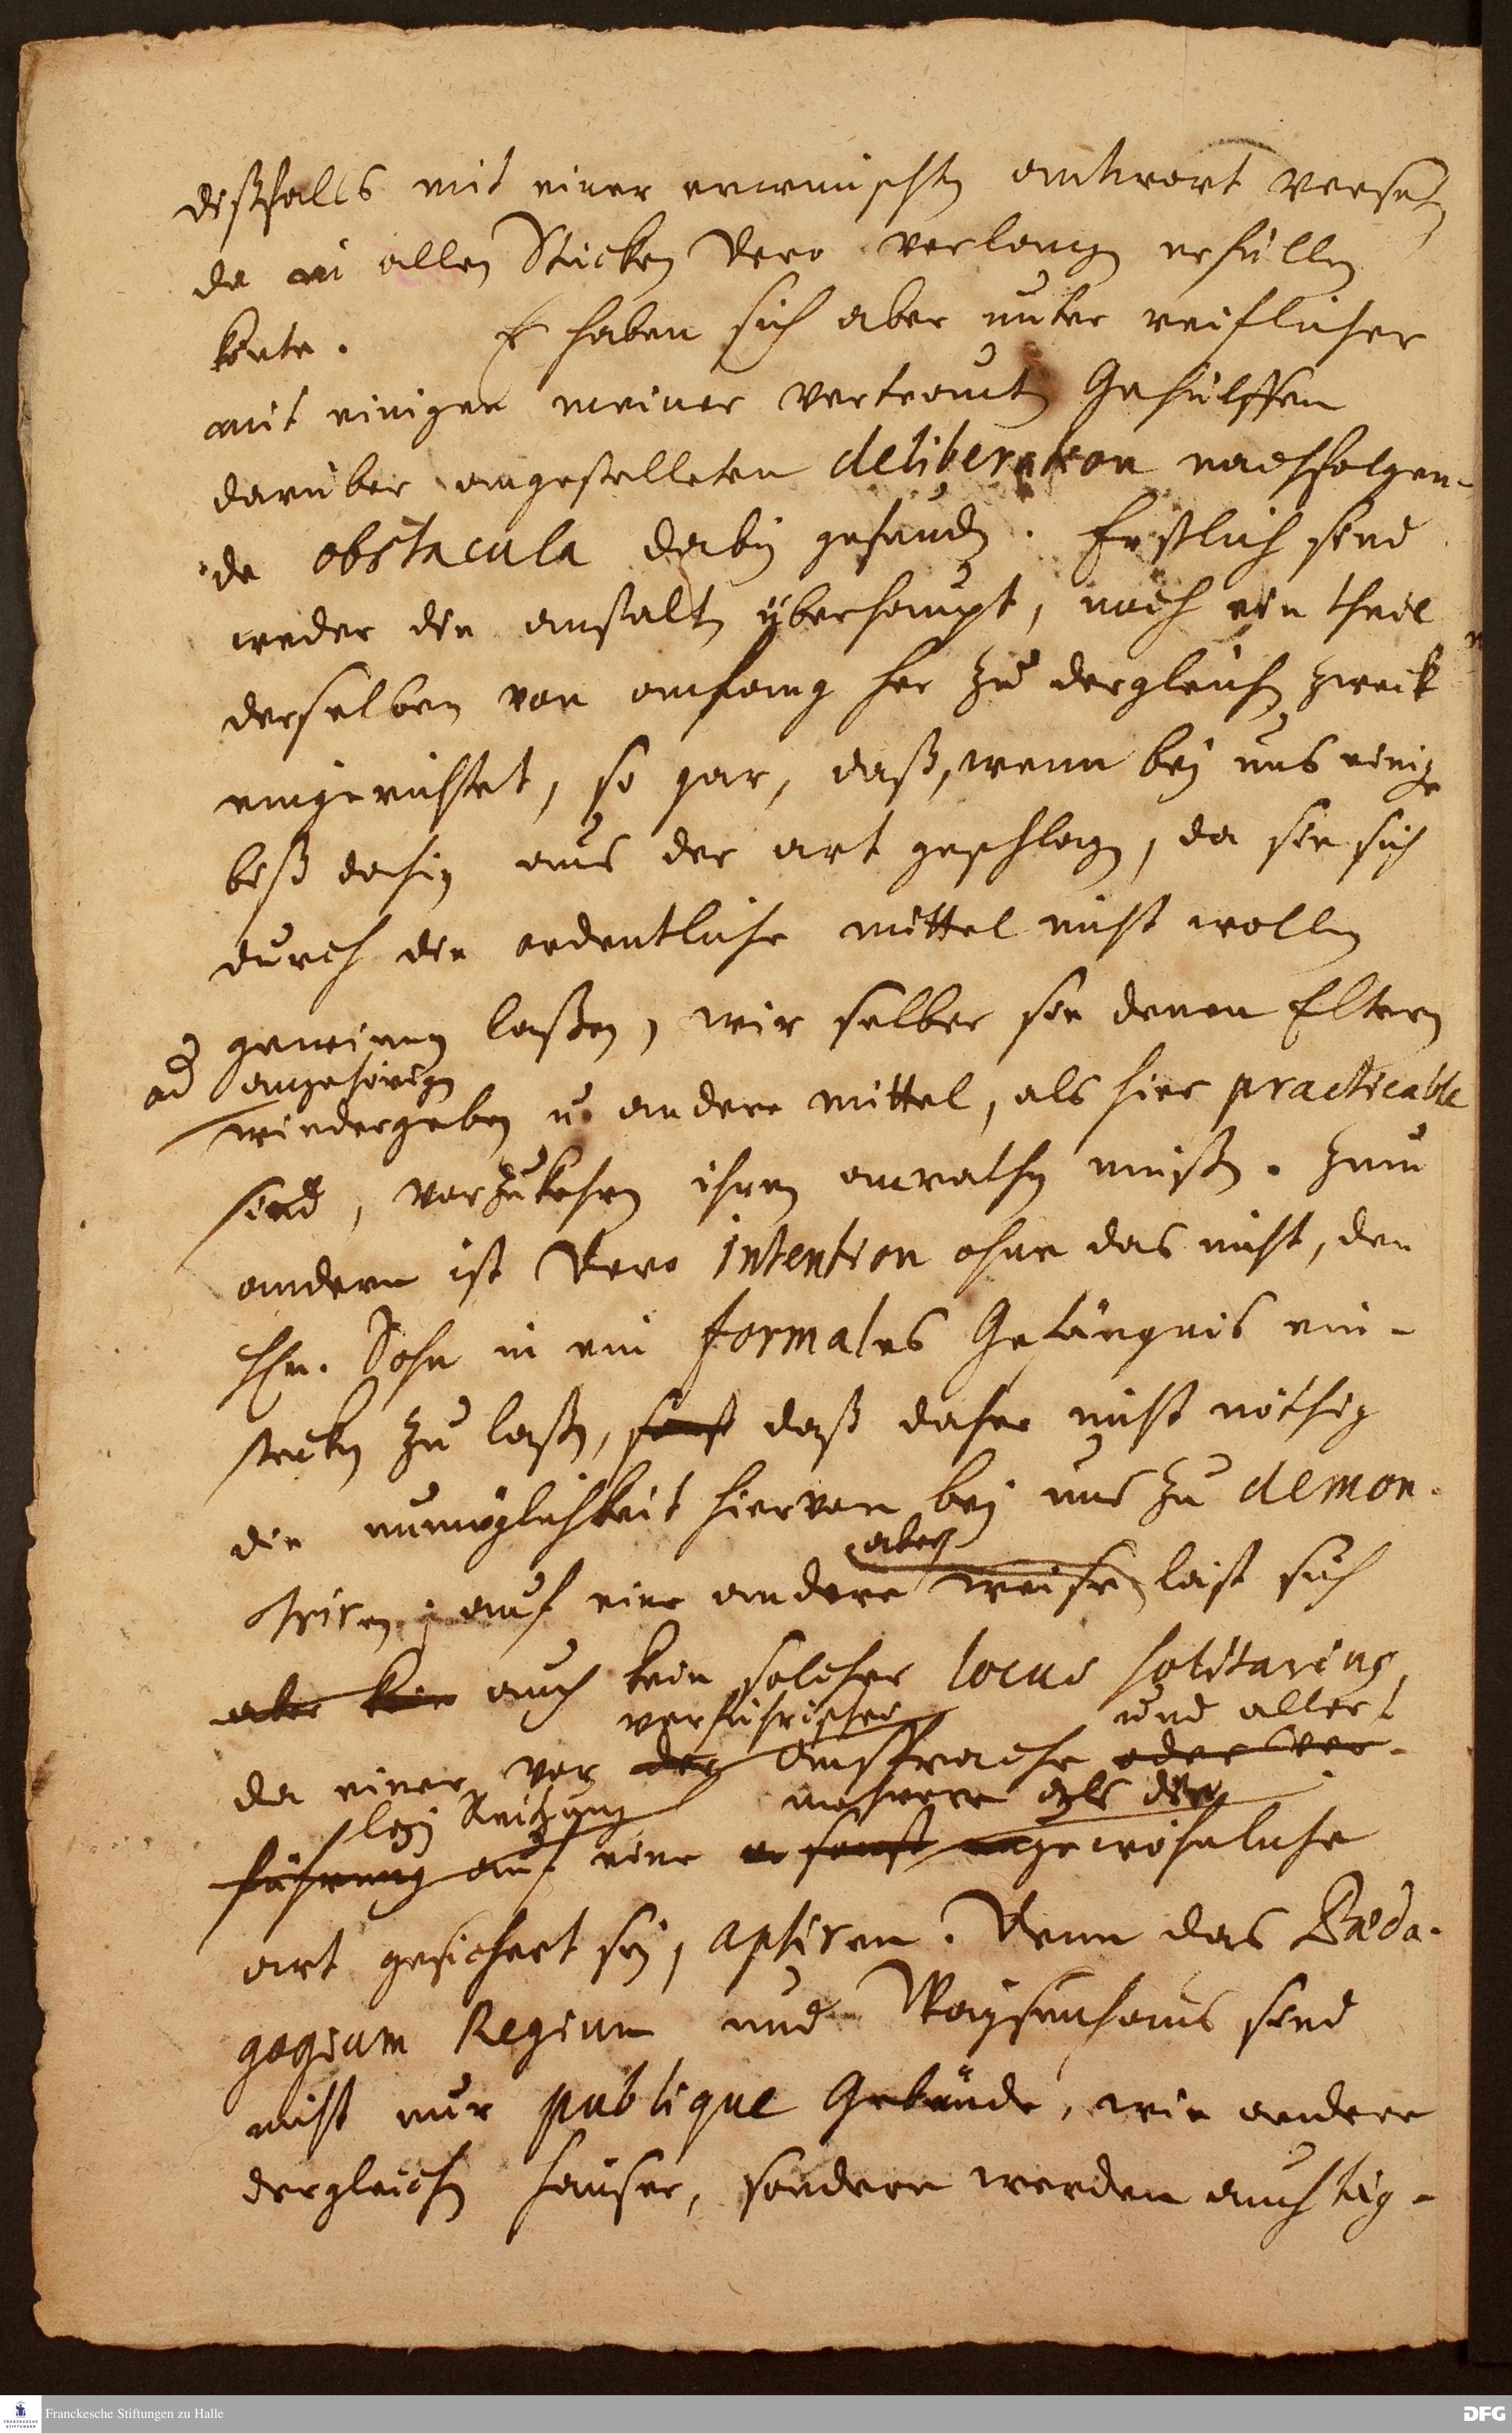 deßfalls mit einer erwünschten antwort versehen,
da in allen Stücken Dero verlangen erfüllen
könte. Es haben sich aber unter reiflicher
mit einigen meiner vertrauten Gehülffen
darüber angestelleten deliberation nachfolgen-
de obstacula dabey gefunden. Erstlich sind
weder die anstalten überhaupt, noch ein theil
derselben von anfang her zu dergleichen zweck
eingerichtet, so gar, daß, wenn bey uns einige
biß dahin aus der art geschlagen, da sie sich
durch die ordentliche mittel nicht wollen
gewinnen laßen, wir selber sie denen Eltern
od angehörigen
wiedergeben u. andere mittel, als hier practicable
sind, vorzukehren ihnen anrathen müßen. Zum
andern ist Dero intention ohne das nicht, den
Hn. Sohn in ein formales Gefängnis ein-
stecken zu laßen, sonst daß daher nicht nöthig
die unmöglichkeit hiervon bey uns zu demon-
aber
striren; auf eine andere weise läst sich
aber kein auch kein solcher locus solitarius,
verführischer und aller
da einer vor der Ansprache oder ver-
ley Reitzung mehrere als die
führung auf eine sonst gewöhnliche
art gesichert sey, aptiren. Denn das Pæda-
gogium Regium und Waysenhaus sind
nicht nur publique Gebäude, wie andere
dergleichen häuser, sondern werden auch täg-
Franckesche Stiftungen zu Halle
DFG